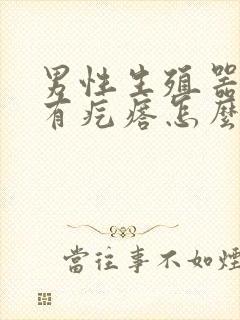 男性生殖器
有疙瘩怎麼
當往事不如煙